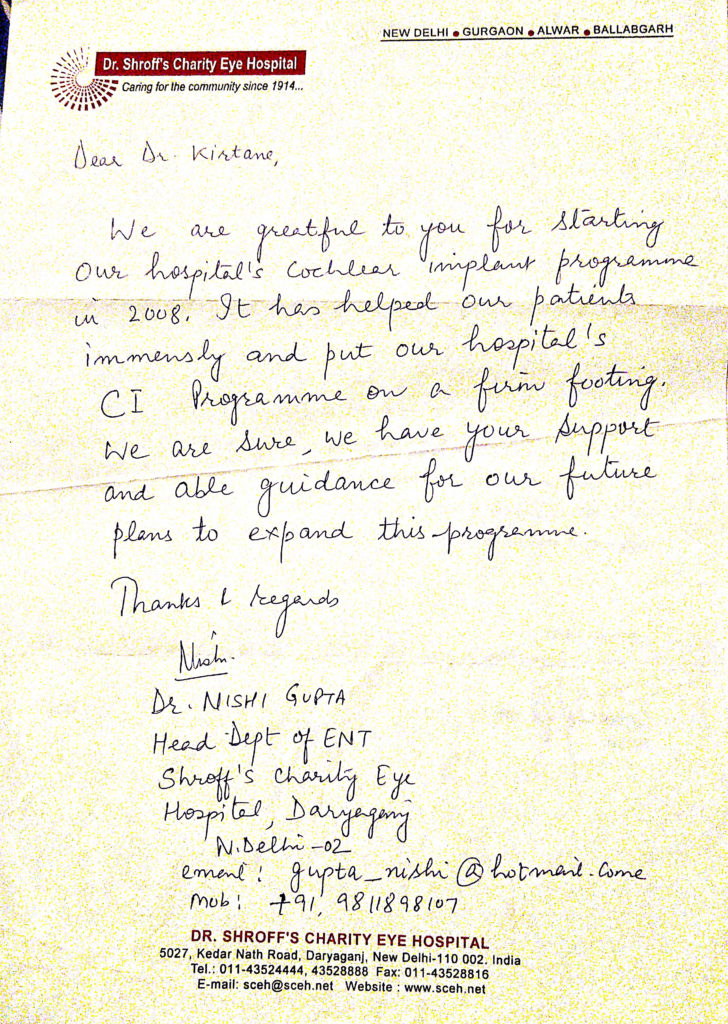 NEW DELHI • GURGAON • ALWAR • BALLABGARH
Dr. Shroff's Charity Eye Hospital
Caring for the community since 1914...
Dear Dr. Kirtane,
We are greatful to you for starting
our hospital's Cochlear implant programme
in 2008. It has helped our patients
immensly and put our hospital's
CI Programme on a firm footing.
We are sure, we have your support
and able guidance for our future
plans to expand this programme.
Thanks & regards
Nishi
Dr. NISHI GUPTA
Head Dept of ENT
Shroff's Charity Eye
Hospital, Daryaganj
N.Delhi-02
email: gupta_nishi@hotmail.come
Mob: +91, 9811898107
DR. SHROFF'S CHARITY EYE HOSPITAL
5027, Kedar Nath Road, Daryaganj, New Delhi-110 002. India
Tel.: 011-43524444, 43528888 Fax: 011-43528816
E-mail: sceh@sceh.net Website : www.sceh.net